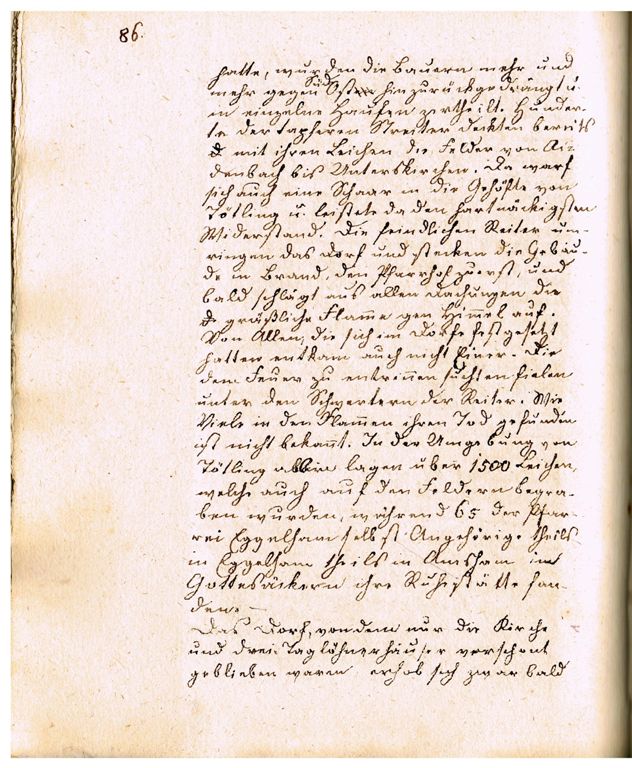 86.
hatte, wurden die Bauern mehr und
mehr gegen Süd Osten hin zurückgedrängt u.
in einzelne Haufen zertheilt. Hunder-
te der tapferen Streiter deckten bereits
mit ihren Leichen die Felder von Ai-
denbach bis Unterskirchen. Da warf
sich auch eine Schaar in die Gehöfte von
Tötling u. leistete da den hartnäckigsten
Widerstand. Die feindlichen Reiter um-
ringen das Dorf und stecken die Gebäu-
de in Brand, den Pfarrhof zuerst, und
bald schlägt aus allen Dachungen die
gräßliche Flamme gen Himmel auf.
Von Allen, die sich im Dorfe festgesetzt
hatten entkam auch nicht Einer. Die
dem Feuer zu entrinnen suchten fielen
unter den Schwertern der Reiter. Wie
Viele in den Flammen ihren Tod gefunden
ist nicht bekannt. In der Umgebung von
Tötling allein lagen über 1500 Leichen,
welche auch auf den Feldern begra-
ben wurden, während 65 der Pfar-
rei Eggelham selbst Angehörige theils
in Eggelham theils in Amsham im
Gottesäckern ihre Ruhestätte fan-
den. –
Das Dorf, von dem nur die Kirche
und drei Taglöhnerhäuser verschont
geblieben waren erhob sich zwar bald